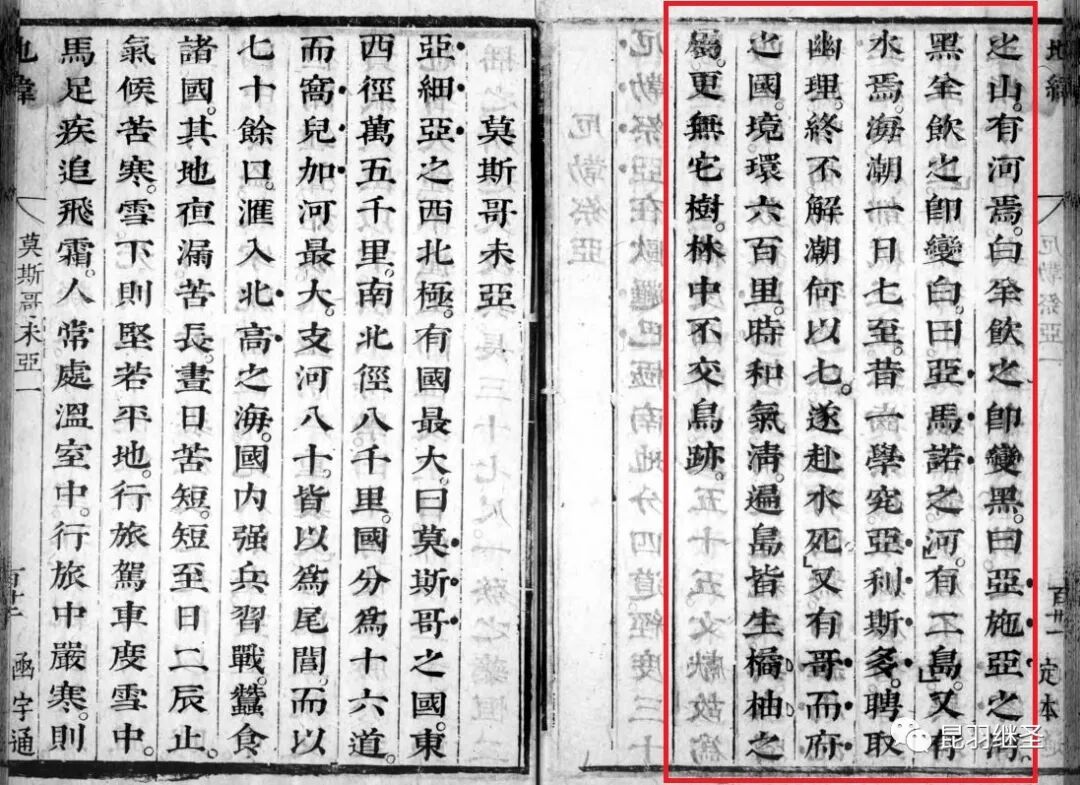 地緯
厄勒祭亞
定本
之山。有河焉。白羊飲之卽變黑。曰亞施亞之河
黑羊飲之卽變白。曰亞馬諾之河。有二島。又有
水焉。海潮一日七至。昔一學究亞利斯多。聘取
幽理。終不解潮何以七。遂赴水死。又有哥而府
之國。境環六百里。時和氣淸。遍島皆生橘柚之
屬。更無它樹。林中不交鳥跡。
莫斯哥未亞
亞細亞之西北極。有國最大。曰莫斯哥之國。東
西徑萬五千里。南北徑八千里。國分爲十六道。
而窩兒加河最大。支河八十。皆以爲尾閭。而以
七十餘口。滙入北高之海。國內强兵習戰。蠶食
諸國。其地夜漏苦長。晝日苦短。短至日二辰止。
氣候苦寒。雪下則堅若平地。行旅駕車度雪中。
馬足疾追飛霜。人常處溫室中。行旅中嚴寒。則
地緯
莫斯哥未亞一
函宇通
昆羽继圣